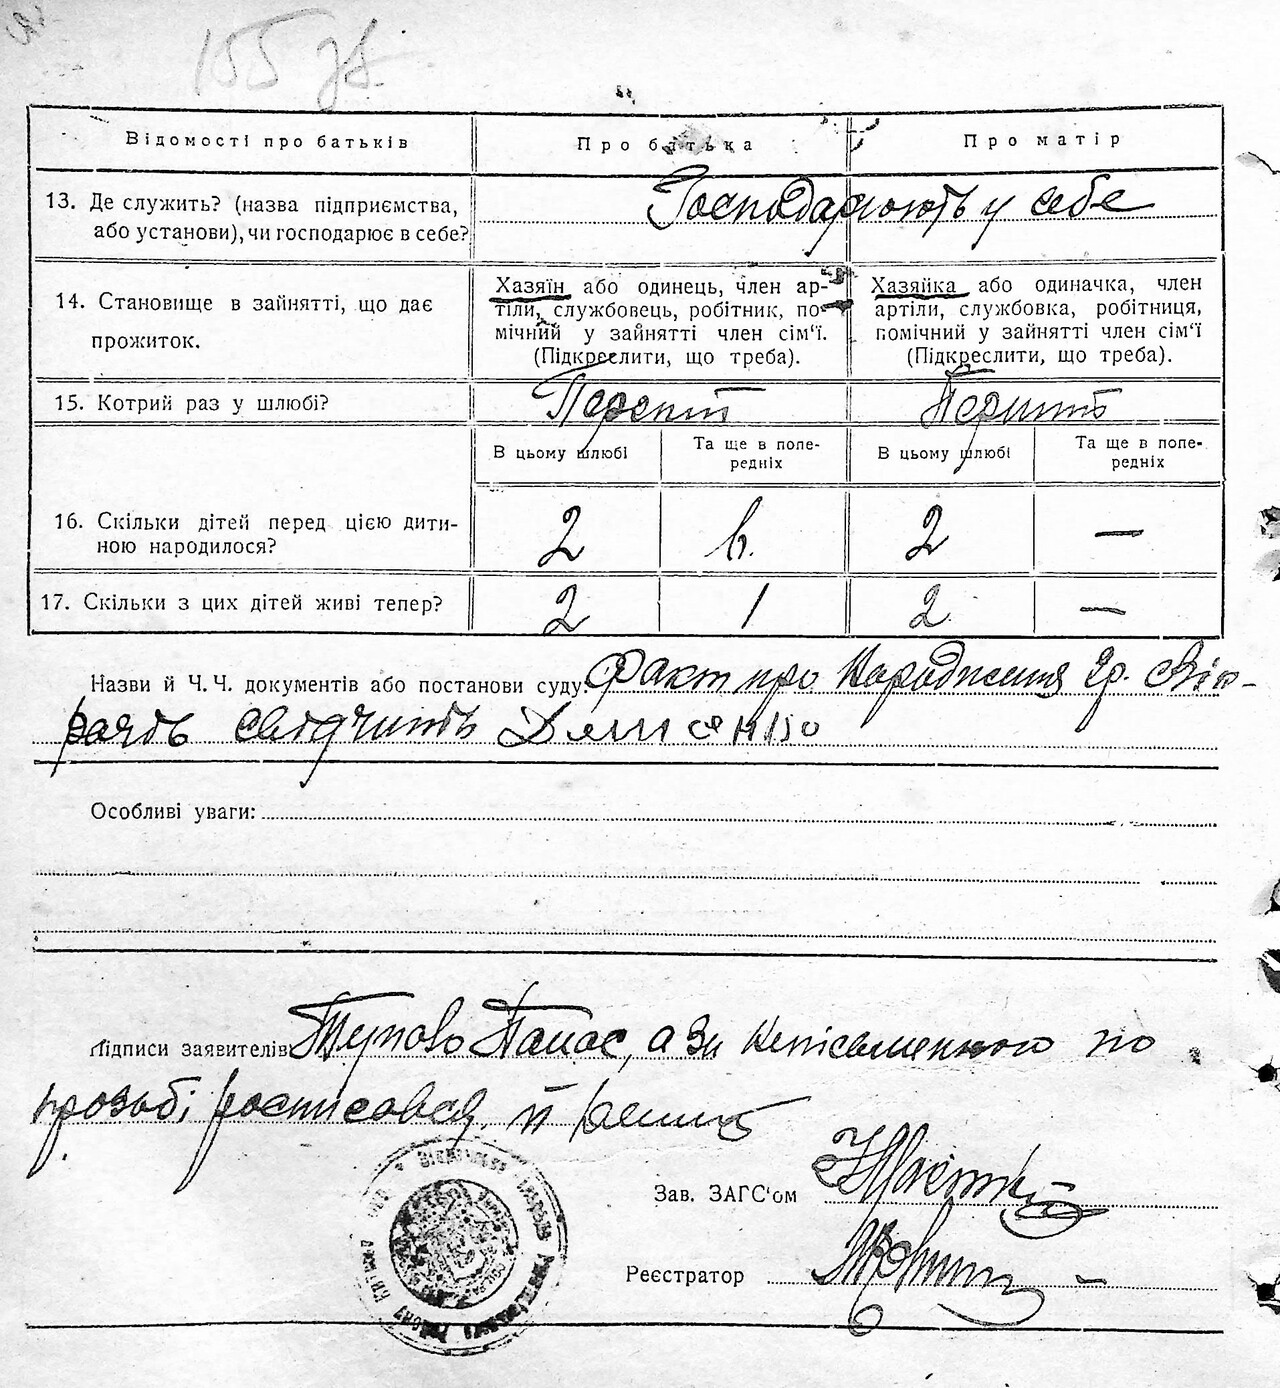 155 зв.
Відомості про батьків
Про батька
Про матір
13. Де служить? (назва підприємства,
або установи), чи господарює в себе?
Господарюють у себе
14. Становище в зайнятті, що дає
прожиток.
Хазяїн або одинець, член ар-
тіли, службовець, робітник, по-
мічний у зайнятті член сім'ї.
(Підкреслити, що треба).
Хазяйка або одиначка, член
артіли, службовка, робітниця,
помічний у зайнятті член сім'ї
(Підкреслити, що треба).
15. Котрий раз у шлюбі?
В цьому шлюбі
Та ще в попе-
редніх
В цьому шлюбі
Та ще в попе-
редніх
16. Скільки дітей перед цією дити-
ною народилося?
2
2
—
17. Скільки з цих дітей живі тепер?
2
1
2
—
Назви й Ч. Ч. документів або постанови суду: Факт про Народження гр.
свідчить
Особливі уваги:
Підписи заявителів Панас, а за Неписьменного по
прозьбі росписовся
Зав. ЗАГС'ом
Реєстратор